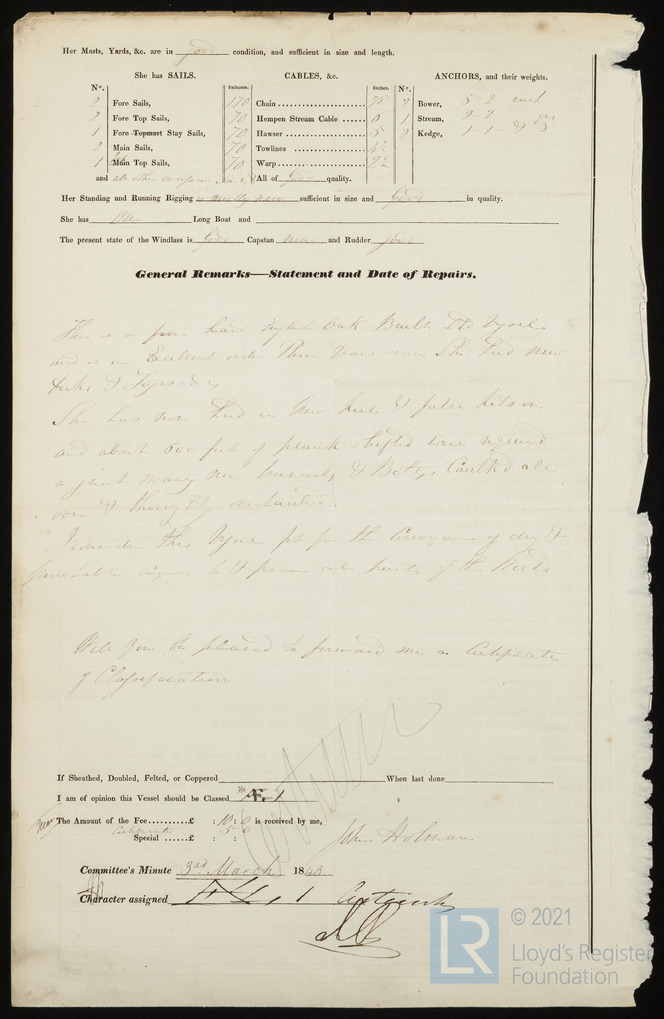 Her Masts, Yards, &c. are in good condition, and sufficient in size and length.
She has SAILS.
CABLES, &c.
ANCHORS, and their weights.
Nº.
Fathoms.
Inches.
Nº.
2 Fore Sails,
170 Chain
2 Bower, 5-2 each
2 Fore Top Sails,
70 Hempen Stream Cable 6
1 Stream, 2-2
1 Fore Topmast Stay Sails,
70 Hawser 5
2 Kedge, 1-1
2 Main Sails,
70 Towlines
1 Main Top Sails,
70 Warp
and all other
All of good quality.
Her Standing and Running Rigging is mostly new sufficient in size and Good in quality.
She has One Long Boat and
The present state of the Windlass is Good Capstan new and Rudder good
General Remarks—Statement and Date of Repairs.
This is a fine English Oak Built Old Vessel
and is in Excellent order Three years since She had new
decks & Topsides
She has now had a New Keel & false Kilson
and about 600 feet of plank shifted where required
a great many new treenails & Bolts, Caulkd all
over & thoroughly overhauled
I consider this Vessel fit for the Conveyance of dry &
perishable cargoes to & from all parts of the World
Will you be pleased to forward me a Certificate
of Classification
If Sheathed, Doubled, Felted, or Coppered When last done
I am of opinion this Vessel should be Classed Æ. 1
The Amount of the Fee £ : 10 : 0 is received by me,
Certificate 5 0
Special £ : :
John Holman
Committee's Minute 3rd March 1843
Character assigned Æ. 1
© 2021
LR
Lloyd's Register
Foundation